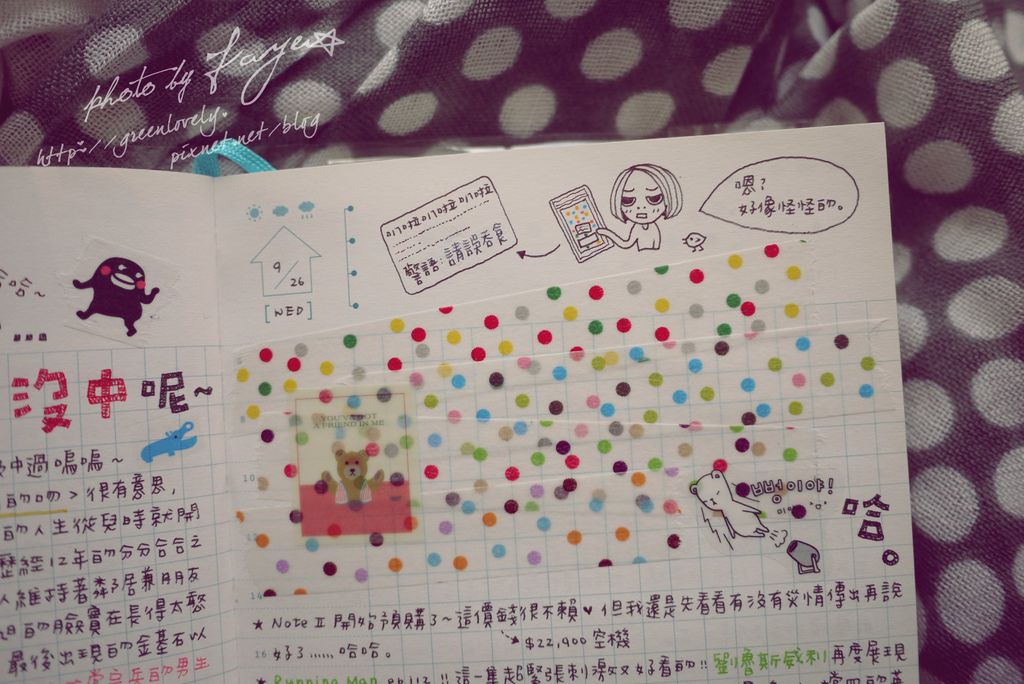 photo by Faye
http://greenlovely.
pixnet.net/blog
叭啦叭啦叭啦叭啦
警語:請誤吞食
嗯?
好像怪怪的。
9/26
[WED]
沒中呢~
中過嗚嗚~
很有意思,
的人生從兒時就開
歷經12年的分分合合之
維持著鄰居兼朋友
的臉實在長得太憨
最後出現的金基石以
YOU'VE GOT
A FRIEND IN ME
뻥이야!
哈
8
10
14
★ Note II 開始預購了~這價錢很不賴♥但我還是先看看有沒有災情傳出再說
$22,900 空機
16
好了......哈哈。
★ Running Man ep112!!這一集超緊張刺激又好看的!!劉魯斯威利再度展現